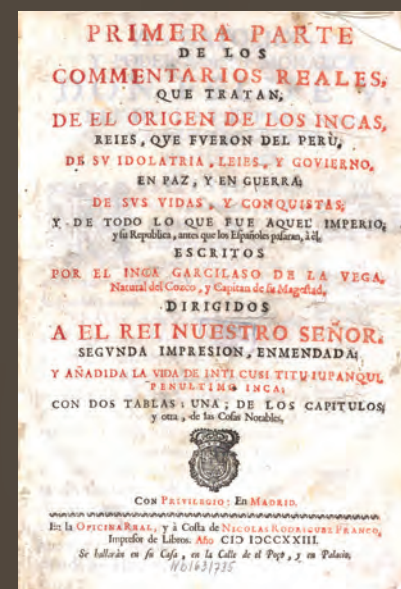 PRIMERA PARTE
DE LOS
COMMENTARIOS REALES,
QUE TRATAN,
DE EL ORIGEN DE LOS INCAS,
REIES, QVE FVERON DEL PERÙ,
DE SV IDOLATRIA, LEIES, Y GOVIERNO,
EN PAZ, Y EN GUERRA;
DE SVS VIDAS, Y CONQUISTAS;
Y DE TODO LO QUE FUE AQUEL IMPERIO;
y su Republica, antes que los Españoles pasaran, à èl.
ESCRITOS
POR EL INCA GARCILASO DE LA VEGA,
Natural del Cozco, y Capitan de su Magestad,
DIRIGIDOS
A EL REI NUESTRO SEÑOR.
SEGVNDA IMPRESION, ENMENDADA;
Y AÑADIDA LA VIDA DE INTI CUSI TITU IUPANQUI,
PENULTIMO INCA;
CON DOS TABLAS; UNA; DE LOS CAPITULOS;
y otra, de las Cosas Notables.
CON PRIVILEGIO: EN MADRID.
En la OFICINA REAL, y à Costa de NICOLAS RODRIGUEZ FRANCO,
Impresor de Libros. Año CIↃ IↃCCXXIII.
Se hallaràn en su Casa, en la Calle de el Poço, y en Palacio.